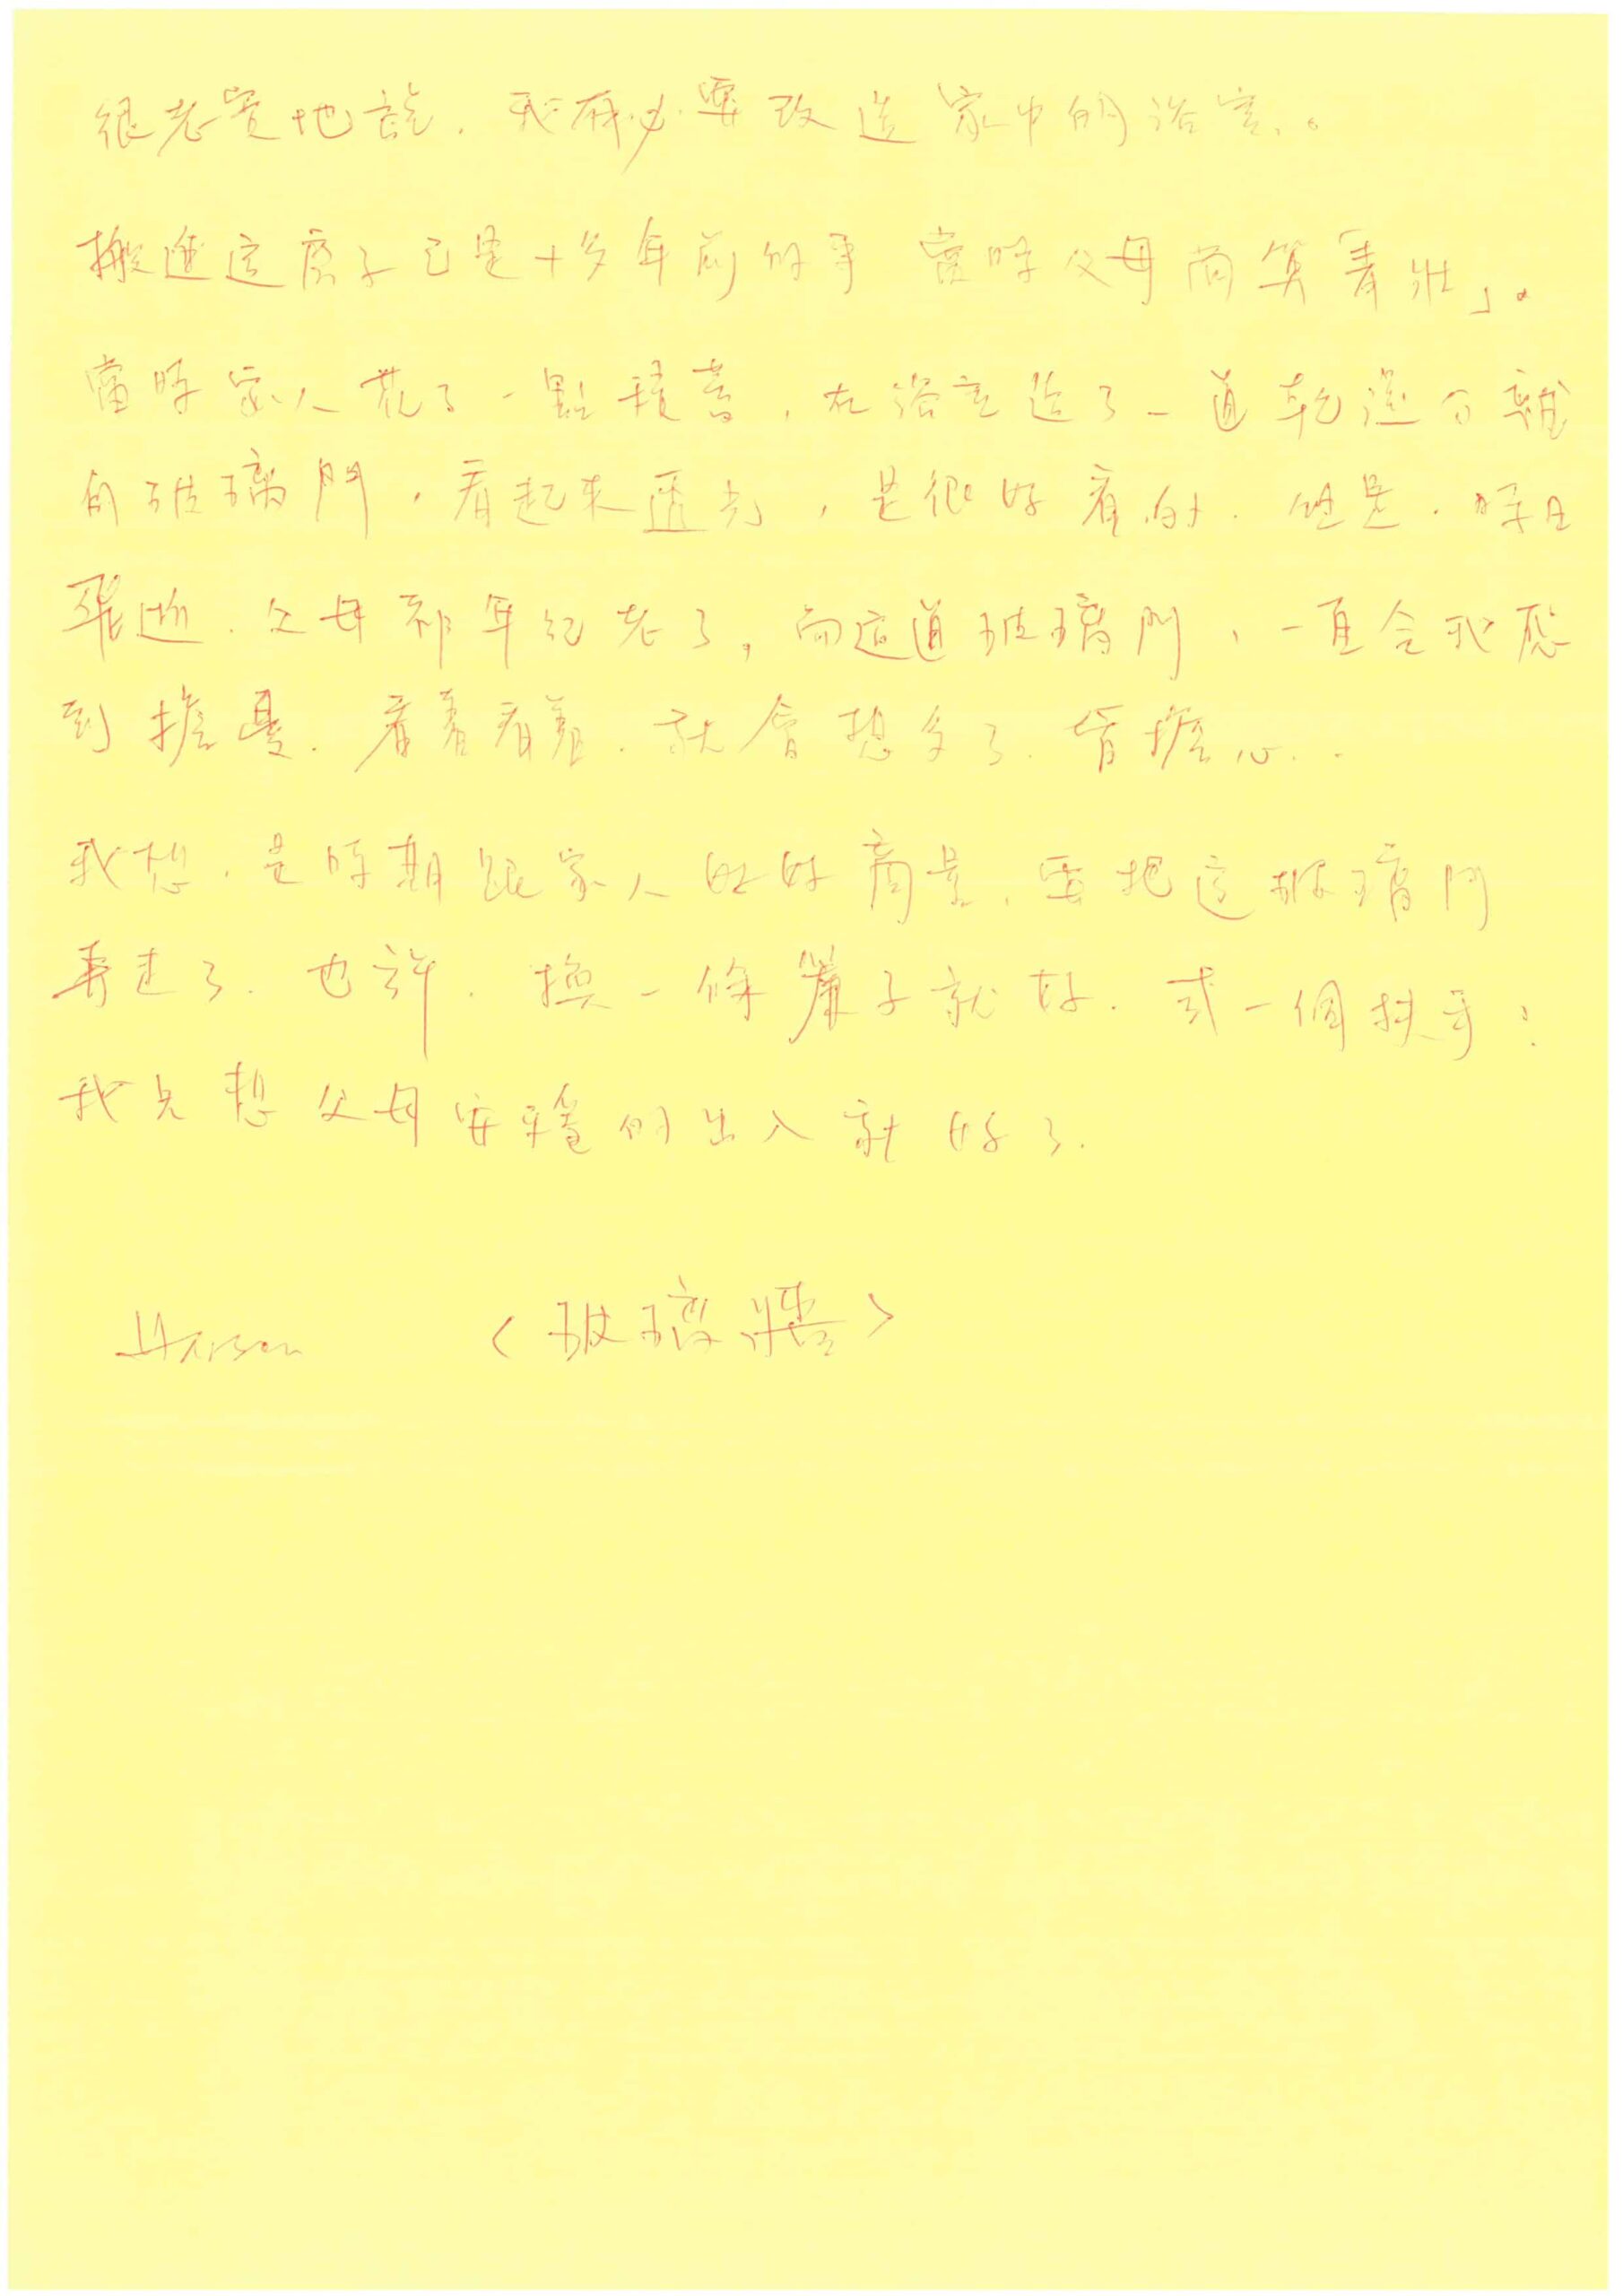 很老實地說，我有必要改造家中的浴室。
搬進這房子已是十多年前的事 當時父母尚算「青壯」。
當時家人花了一點積蓄，在浴室造了一道乾濕分離
的玻璃門，看起來透光，是很好看的．但是．時日
飛逝．父母都年紀老了，而這道玻璃門，一直令我感
到擔憂．看著看著．就會想多了．會擔心..
我想．是時期跟家人好好商量．要把這玻璃門
弄走了．也許．換一條簾子就好．或一個扶手：
我只想父母安穩的出入就好了．
Harson 〈玻璃牆〉